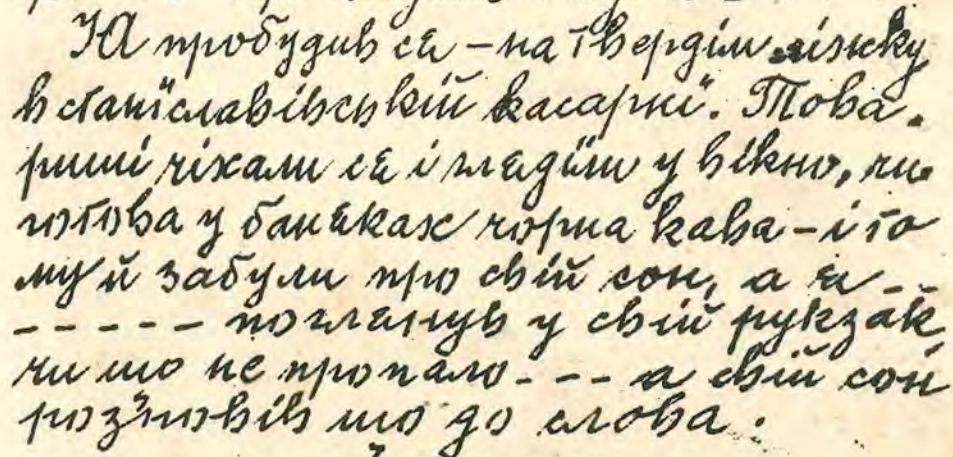 Я пробудив ся – на твердім ліжку
в станїславівській касарнї. Това-
риші чіхали ся і глядїли у вікно, чи
готова у баняках чорна кава – і то
му й забули про свій сон, а я --
----- поглянув у свій рукзак,
чи що не пропало --- а свій сон
розповів що до слова.